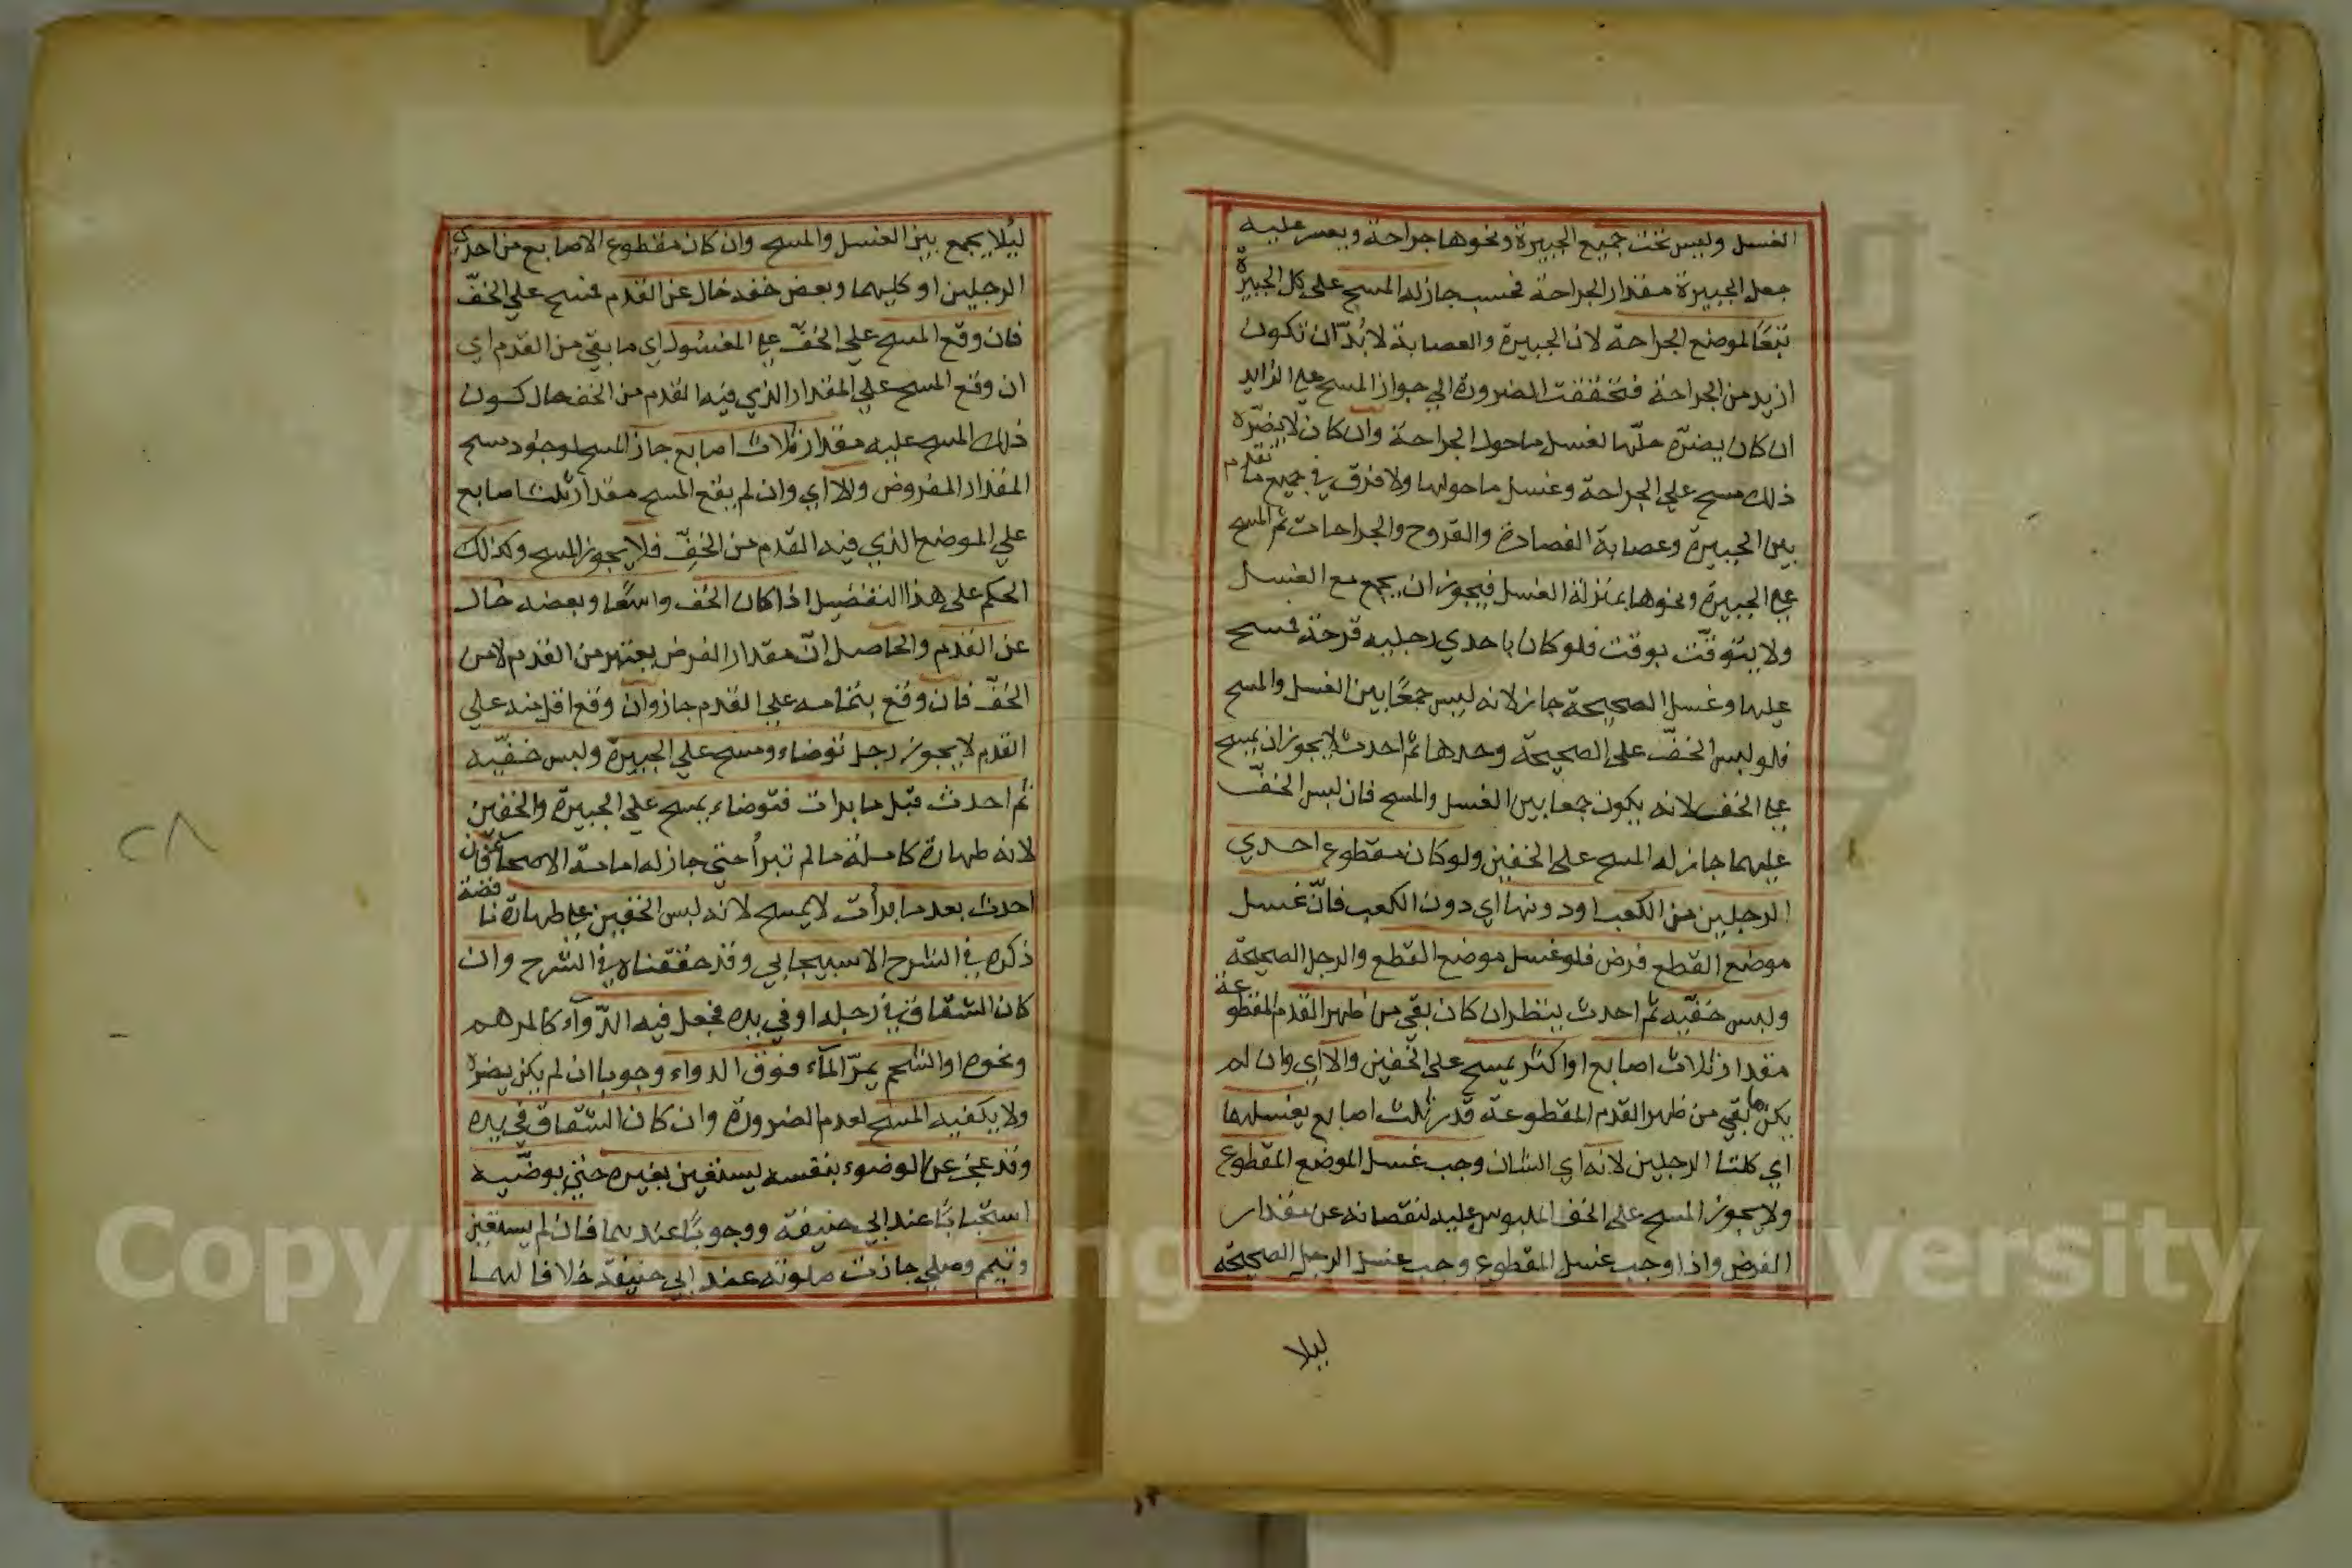 الغسل وليس تحت جميع الجبيرة ونحوها جراحة ويعسر عليه
جعل الجبيرة مقدار الجراحة فحسب جاز له المسح علي كل الجبيرة
تبعًا لموضع الجراحة لان الجبيرة والعصابة لا بُدّ ان تكون
ازيد من الجراحة فتحققت الضرورة الي جواز المسح علي الزايد
ان كان يضرّه حلّها لغسل ما حول الجراحة وان كان لا يضرّه
ذلك مسح علي الجراحة وغسل ما حولها ولا فرق في جميع ما تقدم
بين الجبيرة وعصابة الفصادة والقروح والجراحات ثم المسح
علي الجبيرة ونحوها بمنزلة الغسل فيجوز ان يجمع مع الغسل
ولا يتوقّت بوقت فلو كان باحدي رجليه قرحة فمسح
عليها وغسل الصحيحة جاز لانه ليس جمعًا بين الغسل والمسح
فلو لبس الخفّ علي الصحيحة وحدها ثم احدث لا يجوز ان يمسح
علي الخف لانه يكون جمعا بين الغسل والمسح فان لبس الخفّ
عليهما جاز له المسح علي الخفين ولو كان مقطوع احدي
الرجلين من الكعب او دونها اي دون الكعب فانّ غسل
موضع القطع فرض فلو غسل موضع القطع والرجل الصحيحة
ولبس خفّيه ثم احدث ينظر ان كان بقي من ظهر القدم المقطوعة
مقدار ثلاث اصابع او اكثر يمسح علي الخفين والا اي وان لم
يكن ما بقي من ظهر القدم المقطوعة قدر ثلث اصابع يغسلهما
اي كلتا الرجلين لانه اي الشان وجب غسل الموضع المقطوع
ولا يجوز المسح علي الخف الملبوس عليه لنقصانه عن مقدار
الفرض واذا وجب غسل المقطوع وجب غسل الرجل الصحيحة
ليلا
ليُلا يجمع بين الغسل والمسح وان كان مقطوع الاصابع من احدي
الرجلين او كليهما وبعض خفه خال عن القدم فمسح علي الخفّ
فان وقع المسح علي الخفّ علي المغسُول اي ما بقي من القدم اي
ان وقع المسح علي المقدار الذي فيه القدم من الخف حال كون
ذلك المسح عليه مقدار ثلاث اصابع جاز المسح لوجود مسح
المقدار المفروض والا اي وان لم يقع المسح مقدار ثلث اصابع
علي الموضع الذي فيه القدم من الخفّ فلا يجوز المسح وكذلك
الحكم علي هذا التفضيل اذا كان الخف واسعًا وبعضه خال
عن القدم والحاصل انّ مقدار الفرض يعتبر من القدم لا من
الخفّ فان وقع بتمامه علي القدم جاز وان وقع اقل منه علي
القدم لا يجوز رجل توضاء ومسح علي الجبيرة ولبس خفّيه
ثم احدث قبل ما برات فتوضاء يمسح علي الجبيرة والخفين
لانه طهارة كاملة ما لم تبرأ حتي جاز له امامة الاصحا فان
احدث بعد ما برأت لا يمسح لانه لبس الخفين علي طهارة ناقصة
ذكره في الشرح الاسبيجابي وقد حققناه في الشرح وان
كان الشقاق في رجله او في يده فجعل فيه الدّوآء كالمرهم
ونحوه او الشحم يمرّ المآء فوق الدواء وجوبا ان لم يكن يضره
ولا يكفيه المسح لعدم الضرورة وان كان الشقاق في يده
وقد عجز عن الوضوء بنفسه يستعين بغيره حتي يوضّيه
استحبابًا عند ابي حنيفة ووجوبًا عندهما فان لم يستعين
وتيمم وصلي جازت صلوته عند ابي حنيفة خلافا لهما
٢٨
Copyright © King Saud University